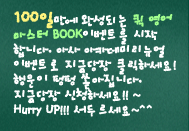 100일만에 완성되는 퀵 영어
마스터 BOOK이벤트를 시작
합니다. 아사 아카데미리뉴얼
이벤트로 지금당장 클릭하세요!
행운이 펑펑 쏟아집니다.
지금당장 신청하세요!! ~
Hurry UP!!! 서두르세요~^^